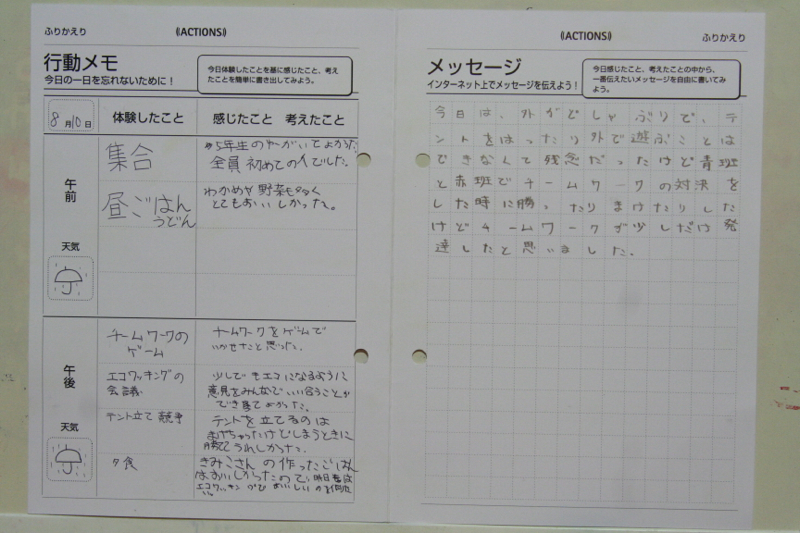 ふりかえり
((ACTIONS))
行動メモ
今日の一日を忘れないために！
今日体験したことを基に感じたこと、考え
たことを簡単に書き出してみよう。
8月10日
体験したこと
感じたこと 考えたこと
午前
天気
集合
5年生の
全員 初めての人でした。
昼ごはん
うどん
わかめや野菜も多く
とてもおいしかった。
午後
天気
チームワークの
ゲーム
チームワークをゲームで
いかせたこと思った。
エコワッキングの
会議
少しでもエコになるように
意見をみんなでいい合うことが
できてよかった。
テント立て 競争
テントを立てるのは
まけちゃったけどしまうときに
勝ててうれしかった。
夕食
きみこさんの作ったごはん
はおいしかったので、明日
エコワッキング
((ACTIONS))
ふりかえり
メッセージ
インターネット上でメッセージを伝えよう！
今日感じたこと、考えたことの中から、
一番伝えたいメッセージを自由に書いてみ
よう。
今日は、外がどしゃぶりで、テ
ントをはったり外で遊ぶことは
できなくて残念だったけど青班
と赤班でチームワークの対決を
した時に勝ったりまけたりした
けどチームワークが少しだけ発
達したと思いました。